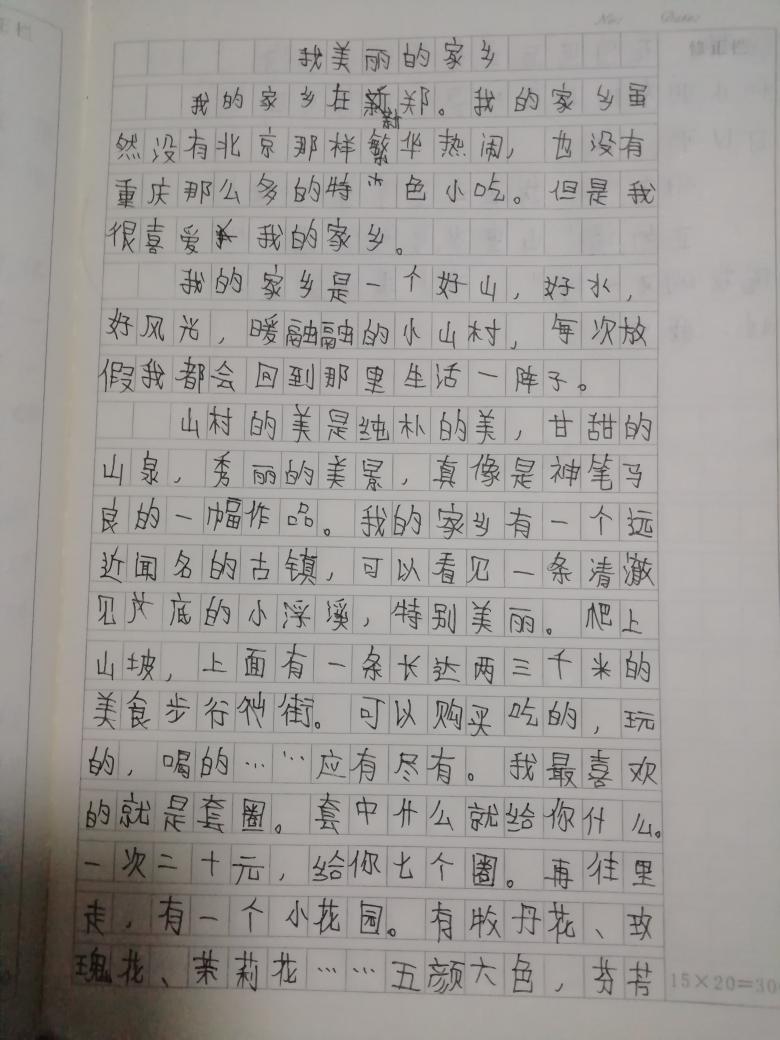 我美丽的家乡
我的家乡在新郑。我的家乡虽
然没有北京那样繁华热闹，也没有
重庆那么多的特色小吃。但是我
很喜爱我的家乡。
我的家乡是一个好山，好水，
好风光，暖融融的小山村，每次放
假我都会回到那里生活一阵子。
山村的美是纯朴的美，甘甜的
山泉，秀丽的美景，真像是神笔马
良的一幅作品。我的家乡有一个远
近闻名的古镇，可以看见一条清澈
见底的小浮溪，特别美丽。爬上
山坡，上面有一条长达两三千米的
美食步行街。可以购买吃的，玩
的，喝的……应有尽有。我最喜欢
的就是套圈。套中什么就给你什么。
一次二十元，给你七个圈。再往里
走，有一个小花园。有牧丹花、玫
瑰花、茉莉花……五颜六色，芬芳
15×20=30